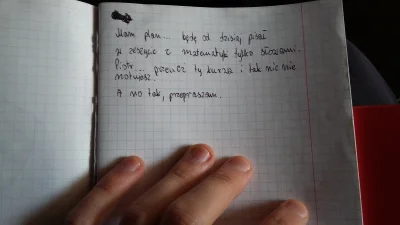 Mam plan... będę od dzisiaj pisał
w zeszycie z matematyki tylko
Piotr... przecież ty kurwa i tak nic nie
notujesz.
A no tak, przepraszam.